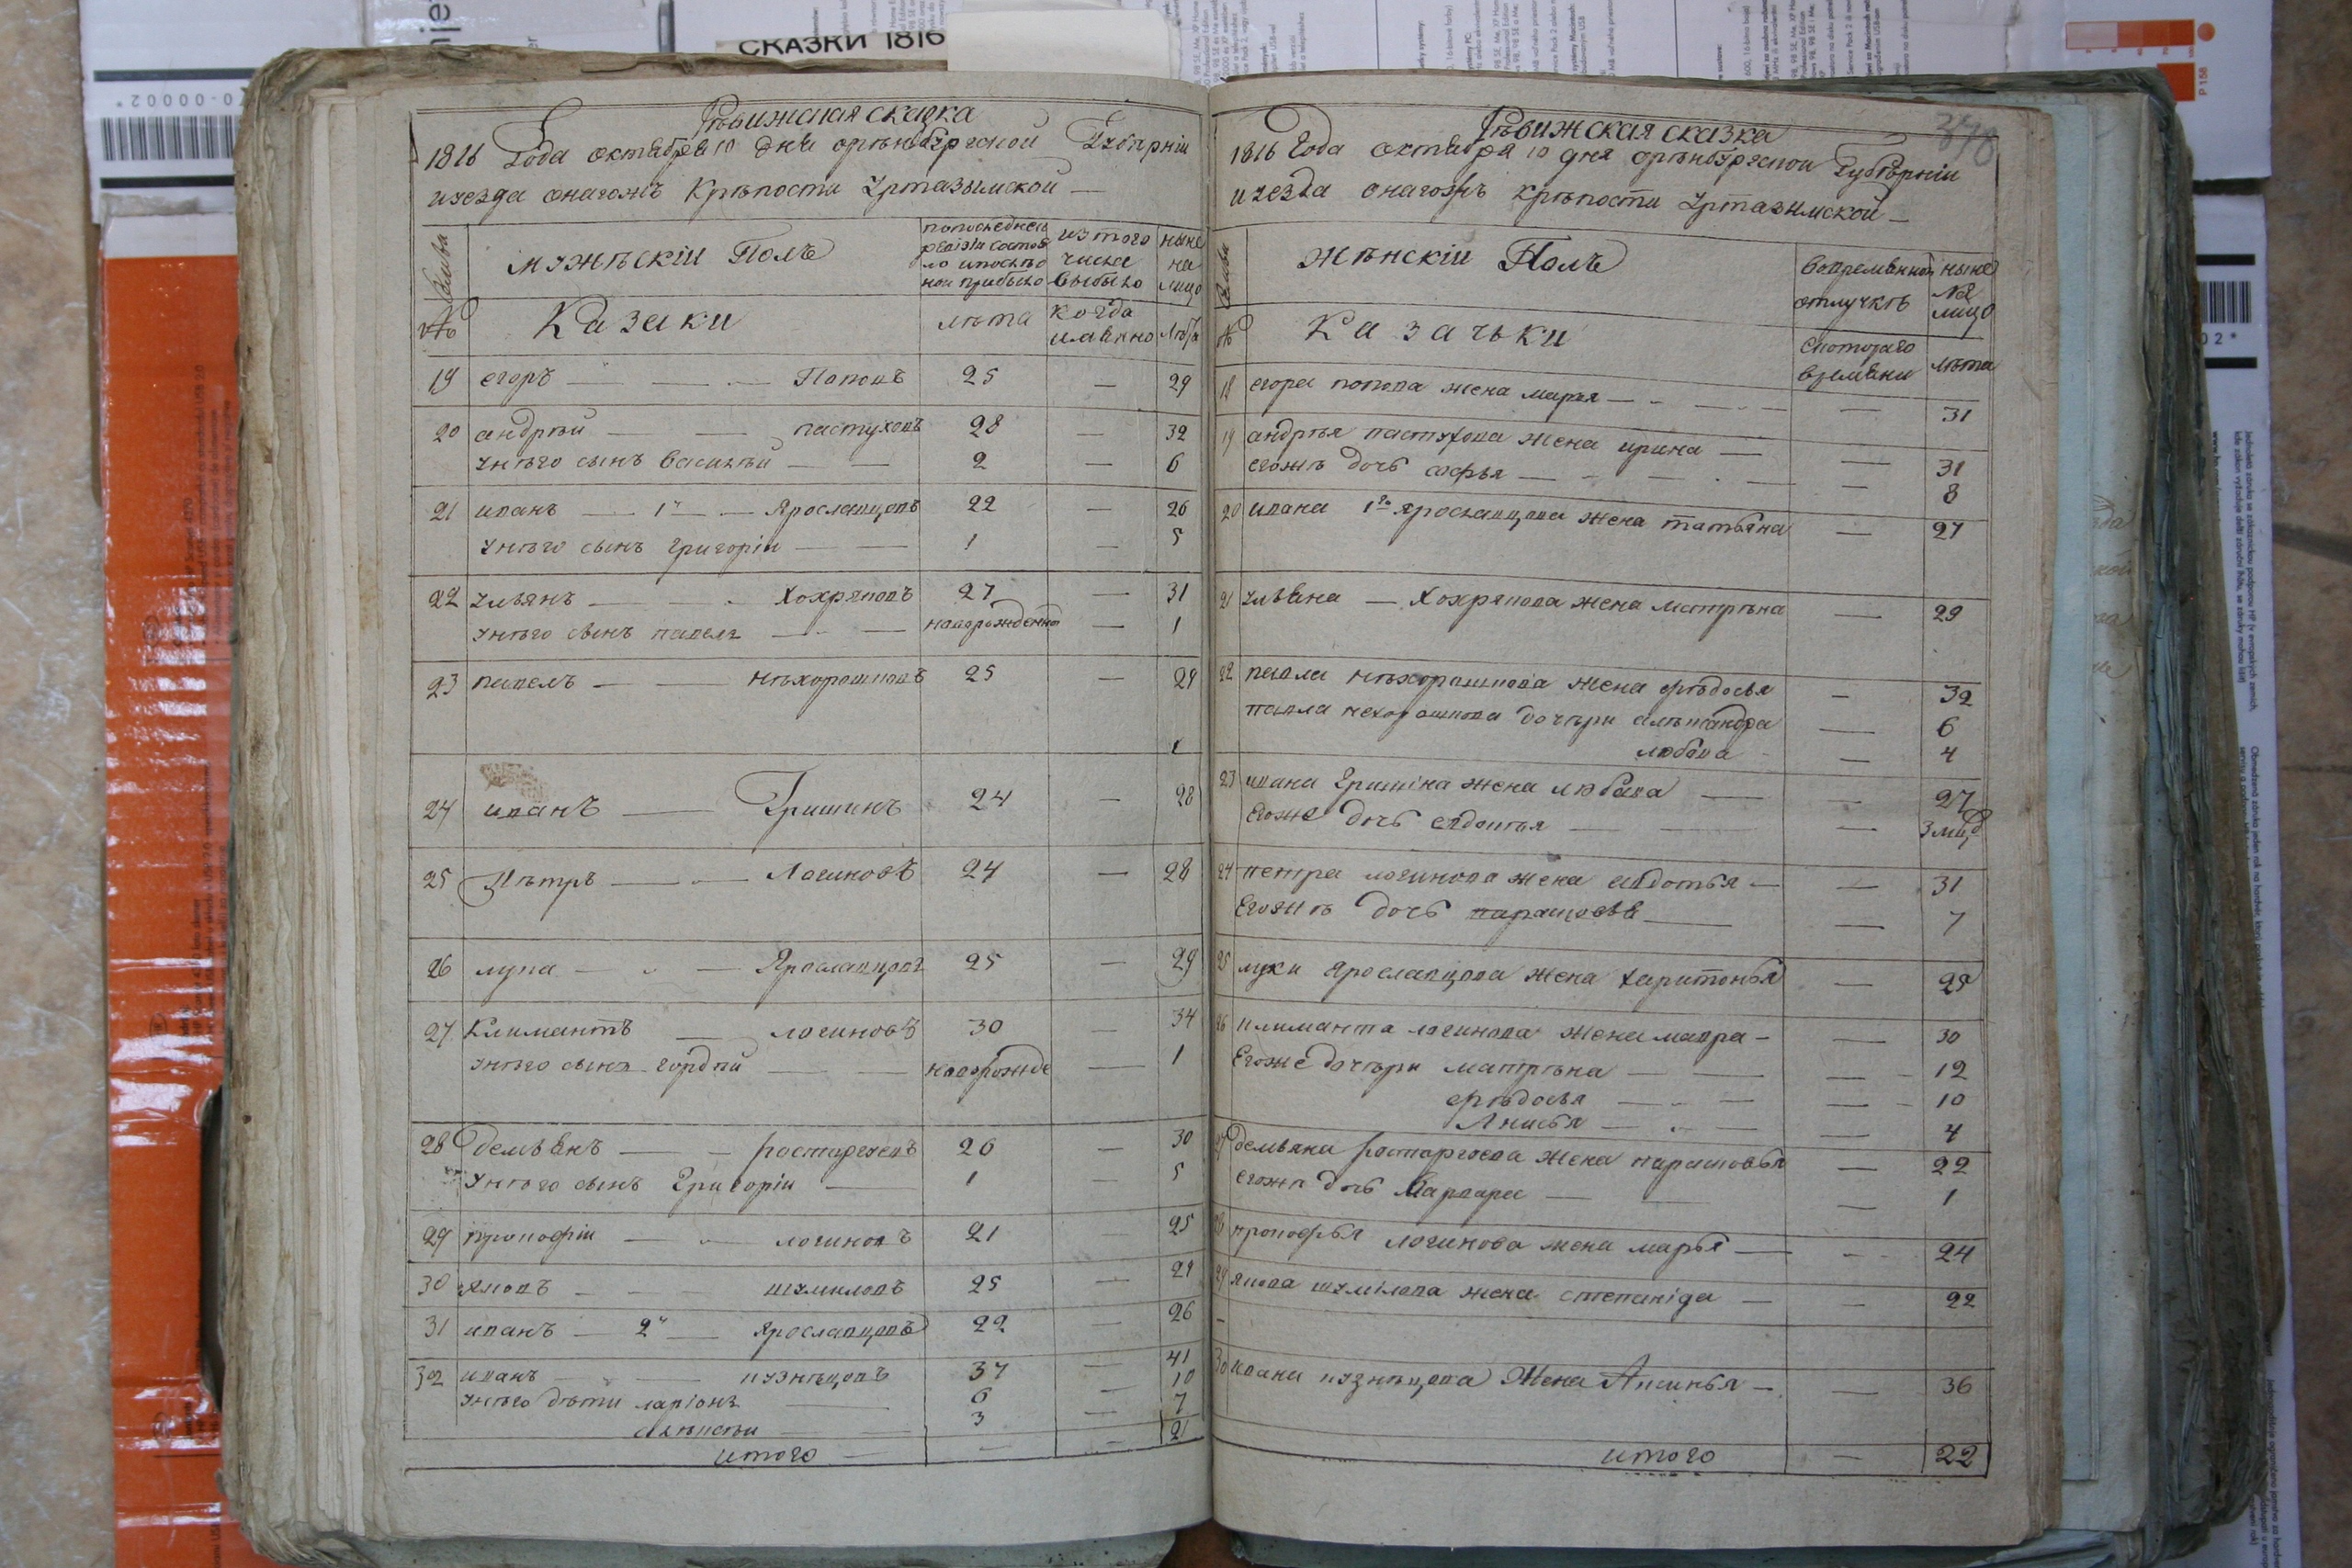 СКАЗКИ 1816
Ревижская сказка
1816 Года октября 10 дня оренбургской Губернiи
и уезда онагожъ Крѣпости Уртазымской
Семьи
№
мужескiй Полъ
попоследней ревизiи состояло ипослѣ оной прибыло
из того числа выбыло
ныне на лицо
Казаки
лѣта
когда имянно
лѣта
19 егоръ Поповъ 25 — 29
20 андрѣй пастуховъ 28 — 32
унѣго сынъ василѣй 2 — 6
21 иванъ 1й Ярославцовъ 22 — 26
унѣго сынъ григорiй 1 — 5
22 ульянъ Хохряковъ 27 — 31
унѣго сынъ павелъ новорожденной — 1
23 павелъ нѣхорошковъ 25 — 29
24 иванъ Гришинъ 24 — 28
25 Пѣтръ Логиновъ 24 — 28
26 лука Ярославцовъ 25 — 29
27 Климантъ логиновъ 30 — 34
унѣго сынъ гордѣй новорожде — 1
28 демьянъ расторгуевъ 26 — 30
унѣго сынъ Григорiй 1 — 5
29 прокофiй логиновъ 21 25
30 яковъ шумиловъ 25 — 29
31 иванъ 2й Ярославцовъ 22 — 26
32 иванъ кузнѣцовъ 37 — 41
унѣго дѣти ларiонъ 6 — 10
алѣксѣй 3 — 7
итого — — 21
378
Ревижская сказка
1816 Года октября 10 дня оренбургской Губернiи
и уезда онагожъ крѣпости Уртазымской
Семьи
№
жѣнскiй Полъ
вовременной отлучкѣ
ныне на лицо
Казачьки
скотораго времяни
лѣта
18 егора попова жена марья — 31
19 андрѣя пастухова жена ирина — 31
егожѣ дочь софья — 8
20 ивана 1го ярославцова жена татьяна — 27
21 ульяна Хохрякова жена матрѣна — 29
22 павла нѣхорошкова жена фѣдосья — 32
павла нехорошкова дочѣри алѣксандра — 6
любава — 4
23 ивана Гришiна жена любава — 27
Егоже дочь евдокья — 3 мцъ
24 петра логинова жена авдотья — 31
Егожѣ дочь парасковья — 7
25 луки ярославцова жена харитонья — 25
26 климанта логинова жена мавра — 30
Егоже дочѣри матрѣна — 12
фѣдосья — 10
Анисья — 4
27 демьяна расторгоева жена парасковья — 22
егожѣ дочь Варвара — 1
28 прокофья логинова жена марья — 24
29 якова шумiлова жена степанiда — 22
30 ивана кузнѣцова Жена Аксинья — 36
итого — 22